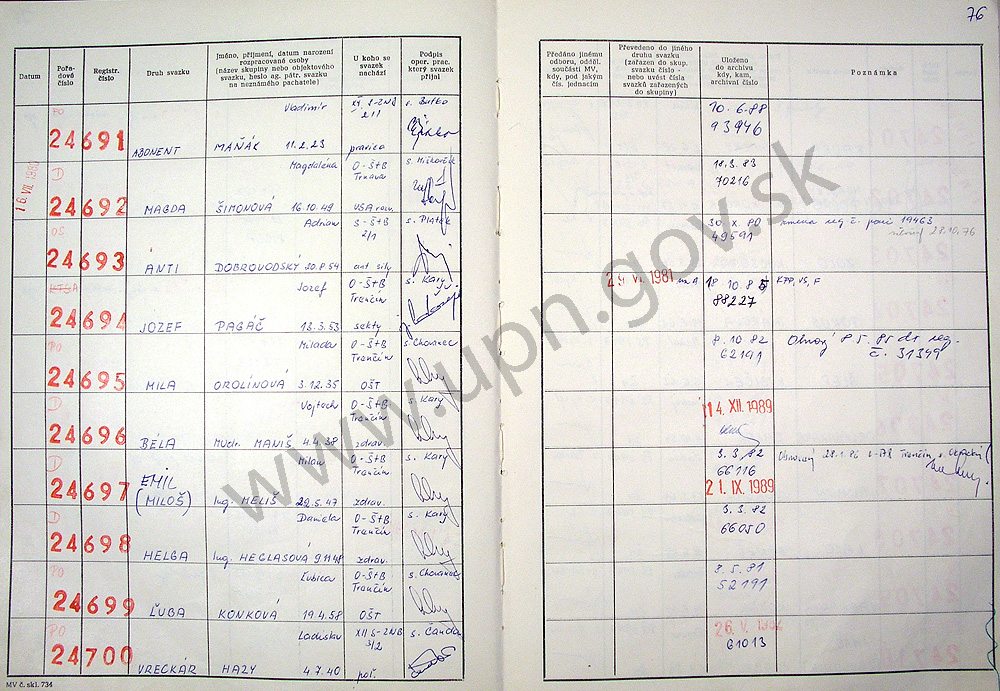 76
Datum
Pořa-
dové
číslo
Registr.
číslo
Druh svazku
Jméno, příjmení, datum narození
rozpracované osoby
(název skupiny nebo objektového
svazku, heslo ag. pátr. svazku
na neznámého pachatele)
U koho se
svazek
nachází
Podpis
oper. prac.
který svazek
přijal
Předáno jinému
odboru, odděl.
součásti MV,
kdy, pod jakým
čís. jednacím
Převedeno do jiného
druhu svazku
(zařazen do skup.
svazku číslo -
nebo uvést čísla
svazků zařazených
do skupiny)
Uloženo
do archivu
kdy, kam,
archivní číslo
Poznámka
PO
24691
ABONENT
Vladimír
MAŇÁK 11.2.23
pravica
10.6.88
93946
16. VII. 1980
D
24692
MAGDA
Magdalena
ŠIMONOVÁ 16.10.49
O-ŠtB
Trnava
18.3.83
70216
OS
24693
ÁNTI
Adrian
DOBROVODSKÝ 20.8.54
S-ŠtB
2/1
s. Platek
30.X.80
49591
zmena reg č. pani 19463
28.10.76
KTSA
24694
JOZEF
Jozef
PAGÁČ 13.3.53
O-ŠtB
Trenčín
sekty
s. Kary
29. VI. 1981
18 10.85
88227
KPP, VS, F
PO
24695
MILA
Milada
OROLÍNOVÁ 3.12.35
O-ŠtB
Trenčín
OŠT
s. Chovanec
8.10 82
62191
Obnový 8 5. 85 do reg.
č. 31349
D
24696
BÉLA
Vojtech
MUDr. MANIŠ 4.4.38
O-ŠtB
Trenčín
zdrav.
s. Kary
14. XII. 1989
D
24697
EMIL
(MILOŠ)
Milan
Ing. HELIŠ 22.5.47
O-ŠtB
Trenčín
zdrav.
s. Kary
3.3.82
66116
21. IX. 1989
Obnovený 28.1.86 Trenčín
D
24698
HELGA
Daniela
Ing. HEGLASOVÁ 9.11.48
O-ŠtB
Trenčín
zdrav.
s. Kary
3.3.82
66050
PO
24699
ĽUBA
Ľubica
KONKOVÁ 19.4.58
O-ŠtB
Trenčín
OŠT
s. Chovanec
8.5.81
52191
PO
24700
VRECKÁR
Ladislav
HAZY 4.7.40
XII S-ZNB
3/2
pol.
s. Čanda
26. V.
61013
MV č. skl. 734
www.upn.gov.sk